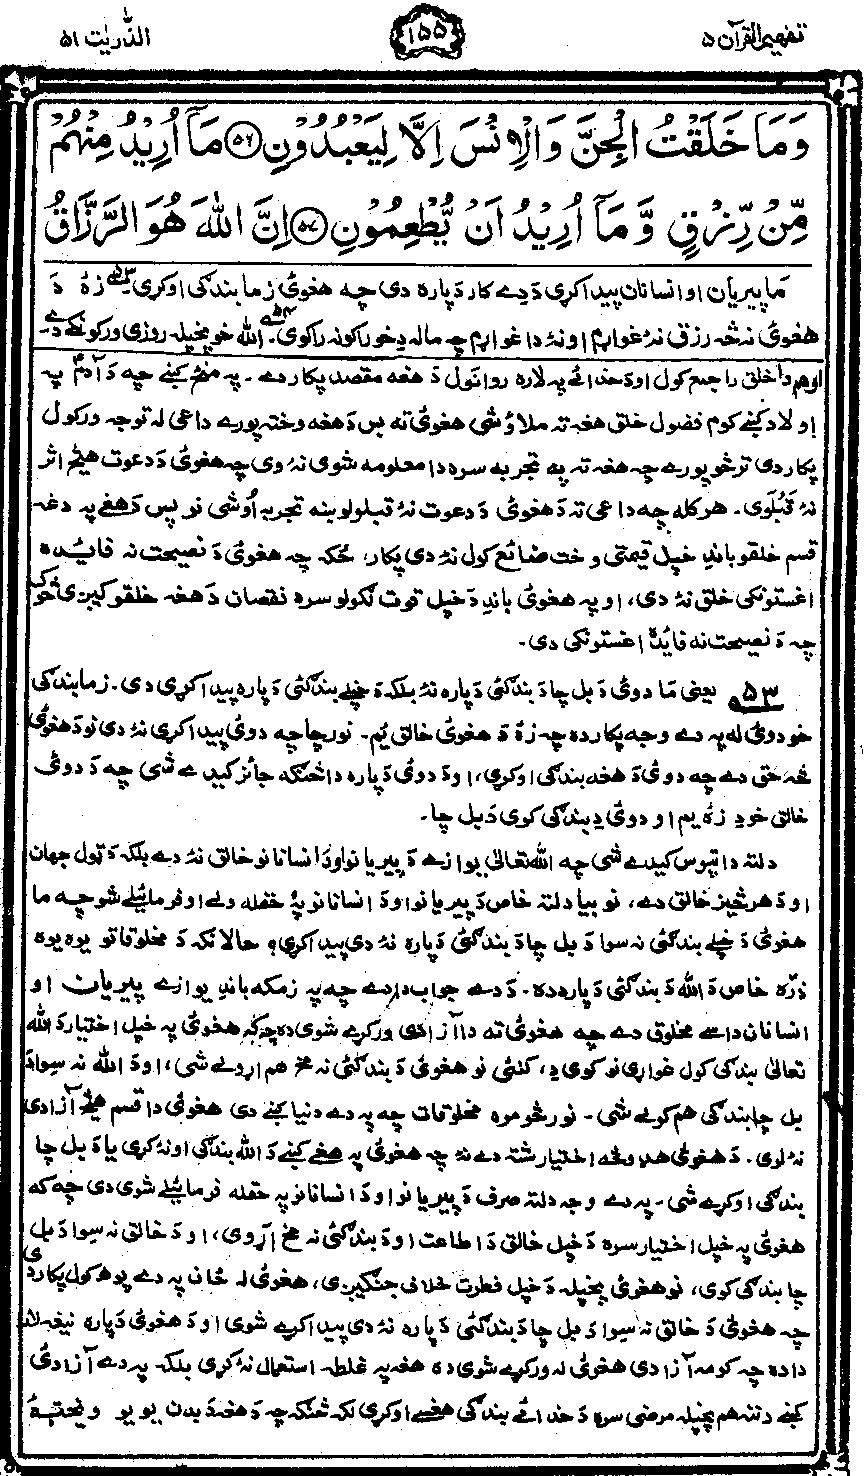 تفهیم القرآن ۵
۱۵۵
الذّٰریٰت ۵۱
وَمَا خَلَقْتُ الْجِنَّ وَالْاِنْسَ اِلَّا لِيَعْبُدُوْنِ ﴿۵۶﴾ مَآ اُرِيْدُ مِنْهُمْ
مِّنْ رِّزْقٍ وَّ مَآ اُرِيْدُ اَنْ يُّطْعِمُوْنِ ﴿۵۷﴾ اِنَّ اللّٰهَ هُوَ الرَّزَّاقُ
ما پیریان او انسانان پیدا کړی دَ دے کار دَپاره دی چه هغوئ زما بندګی اوکړی ۵۳ زۀ دَ
هغوئ نه څه رزق نۀ غواړم او نۀ دا غواړم چه ماله دِ خوراک راکوی ۵۴ الله خو پخپله روزی ورکونکے دے۔
اوهم دا خلق راجمع کول او دَ خدائے په لاره روانول دَ هغه مقصد پکار دے۔ په منځ کښے چه دَ آدمؑ په
اولاد کښے کوم فضول خلق هغه ته ملاؤ شی هغوئ ته بس دَ هغه وخته پورے داعی له توجه ورکول
پکار دی ترڅو پورے چه هغه ته په تجربه سره دا معلومه شوی نۀ وی چه هغوئ دَ دعوت هیڅ اثر
نۀ قبلوی۔ هرکله چه داعی ته دَ هغوئ دَ دعوت نۀ قبلولو ښه تجربه اوشی نو پس دَ هغے په دغه
قسم خلقو باندِ خپل قیمتی وخت ضائع کول نۀ دی پکار، ځکه چه هغوئ دَ نصیحت نه فائیده
اغستونکی خلق نۀ دی، او په هغوئ باندِ دَ خپل قوت لګولو سره نقصان دَ هغه خلقو کیږی څوک
چه دَ نصیحت نه فائده اغستونکی دی۔
۵۳ یعنی ما دوئ دَ بل چا دَ بندګئ دَپاره نۀ بلکه دَ خپلے بندګئ دَپاره پیدا کړی دی۔ زما بندګی
خو دوئ له په دے وجه پکار ده چه زۀ دَ هغوئ خالق یم۔ نور چا چه دوئ پیدا کړی نۀ دی نو دَ هغوئ
څه حق دے چه دوئ دَ هغه بندګی اوکړی، او دَ دوئ دَپاره دا څنګه جائز کیدے شی چه دَ دوئ
خالق خو دِ زۀ یم او دوئ دِ بندګی کوی دَ بل چا۔
دلته دا تپوس کیدے شی چه الله تعالیٰ یوازے دَ پیریانو او دَ انسانانو خالق نۀ دے بلکه دَ ټول جهان
او دَ هر څیز خالق دے، نو بیا دلته خاص دَ پیریانو او دَ انسانانو په حقله ولے اوفرمائیلے شو چه ما
هغوئ دَ خپلے بندګئ نه سوا دَ بل چا دَ بندګئ دَپاره نۀ دی پیدا کړی؟ حالانکه دَ مخلوقاتو یوه یوه
ذرّه خاص دَ الله دَ بندګئ دَپاره ده۔ دَ دے جواب دا دے چه په زمکه باندِ یوازے پیریان او
انسانان داسے مخلوق دے چه هغوئ ته دا آزادی ورکړے شوی ده چه که هغوئ په خپل اختیار دَ الله
تعالیٰ بندګی کول غواړی نو کوی دِ، کنئی نو هغوئ دَ بندګئ نه مخ هم اړولے شی، او دَ الله نه سوا دَ
بل چا بندګی هم کولے شی۔ نور څومره مخلوقات چه په دے دنیا کښے دی هغوئ دا قسم هیڅ آزادی
نۀ لری۔ دَ هغوئ هډو څه اختیار شته دے نۀ چه هغوئ په هغے کښے دَ الله بندګی اونۀ کړی یا دَ بل چا
بندګی اوکړے شی۔ په دے وجه دلته صرف دَ پیریانو او دَ انسانانو په حقله فرمائیلے شوی دی چه که
هغوئ په خپل اختیار سره دَ خپل خالق دَ اطاعت او دَ بندګئ نه مخ اړوی، او دَ خالق نه سوا دَ بل
چا بندګی کوی، نو هغوئ پخپله دَ خپل فطرت خلاف جنګیږی، هغوئ له ځان په دے پوهه کول پکار دی
چه هغوئ دَ خالق نه سوا دَ بل چا دَ بندګئ دَپاره نۀ دی پیدا کړے شوی او دَ هغوئ دَپاره نیغه لار
دا ده چه کومه آزادی هغوئ له ورکړے شوی ده هغه په غلطه استعمال نۀ کړی بلکه په دے آزادئ
کښے دننه هم پخپله مرضی سره دَ خدائے بندګی هغسے اوکړی لکه څنګه چه دَ هغه دَ بدن یو یو ویښته ئے